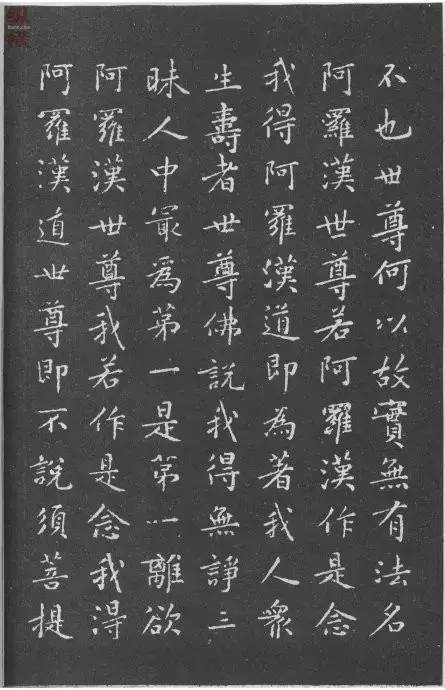 不也世尊何以故實無有法名
阿羅漢世尊若阿羅漢作是念
我得阿羅漢道即為著我人衆
生壽者世尊佛說我得無諍三
昧人中最為第一是第一離欲
阿羅漢世尊我若作是念我得
阿羅漢道世尊即不說須菩提